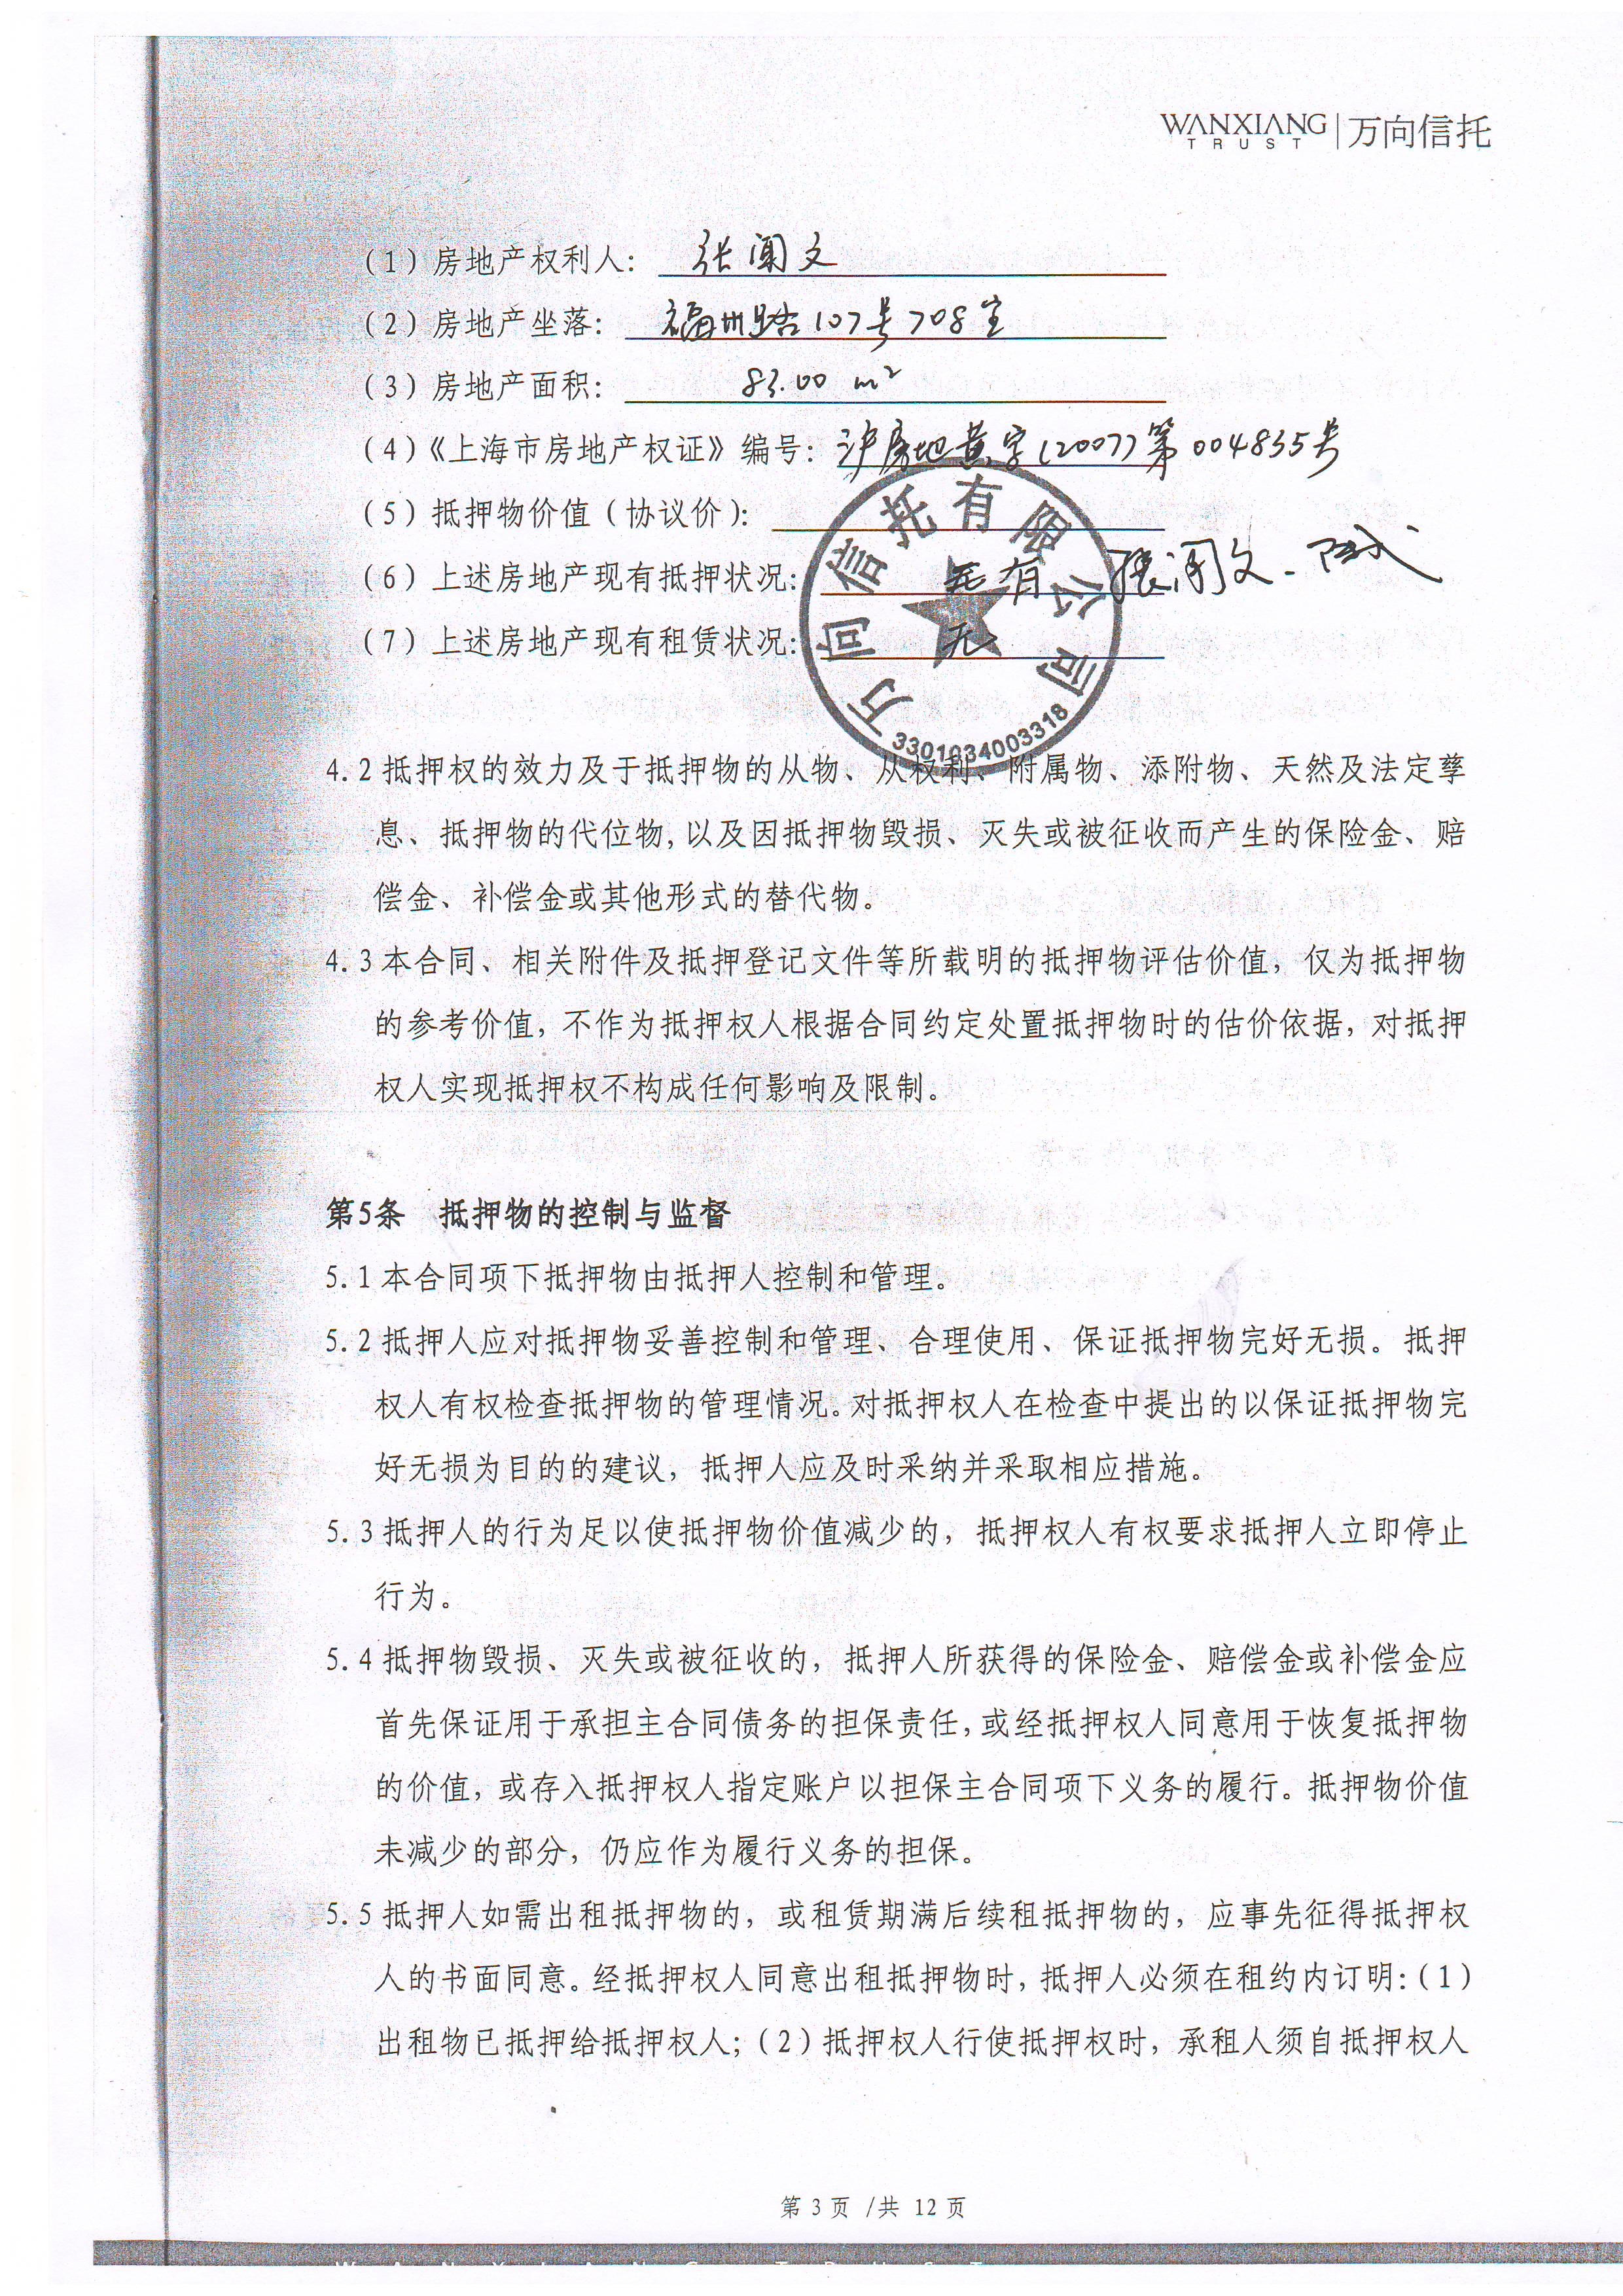 WANXIANG TRUST 万向信托
（1）房地产权利人： 张闻文
（2）房地产坐落： 福州路107号708室
（3）房地产面积： 83.00 m²
（4）《上海市房地产权证》编号：沪房地黄字(2007)第004835号
（5）抵押物价值（协议价）：
（6）上述房地产现有抵押状况： 无 有 张闻文
（7）上述房地产现有租赁状况： 无
万向信托有限公司
3301034003318
4.2 抵押权的效力及于抵押物的从物、从权利、附属物、添附物、天然及法定孳
息、抵押物的代位物，以及因抵押物毁损、灭失或被征收而产生的保险金、赔
偿金、补偿金或其他形式的替代物。
4.3 本合同、相关附件及抵押登记文件等所载明的抵押物评估价值，仅为抵押物
的参考价值，不作为抵押权人根据合同约定处置抵押物时的估价依据，对抵押
权人实现抵押权不构成任何影响及限制。
第5条 抵押物的控制与监督
5.1 本合同项下抵押物由抵押人控制和管理。
5.2 抵押人应对抵押物妥善控制和管理、合理使用、保证抵押物完好无损。抵押
权人有权检查抵押物的管理情况。对抵押权人在检查中提出的以保证抵押物完
好无损为目的的建议，抵押人应及时采纳并采取相应措施。
5.3 抵押人的行为足以使抵押物价值减少的，抵押权人有权要求抵押人立即停止
行为。
5.4 抵押物毁损、灭失或被征收的，抵押人所获得的保险金、赔偿金或补偿金应
首先保证用于承担主合同债务的担保责任，或经抵押权人同意用于恢复抵押物
的价值，或存入抵押权人指定账户以担保主合同项下义务的履行。抵押物价值
未减少的部分，仍应作为履行义务的担保。
5.5 抵押人如需出租抵押物的，或租赁期满后续租抵押物的，应事先征得抵押权
人的书面同意。经抵押权人同意出租抵押物时，抵押人必须在租约内订明：（1）
出租物已抵押给抵押权人；（2）抵押权人行使抵押权时，承租人须自抵押权人
第 3 页 /共 12 页
WANXIANG TRUST